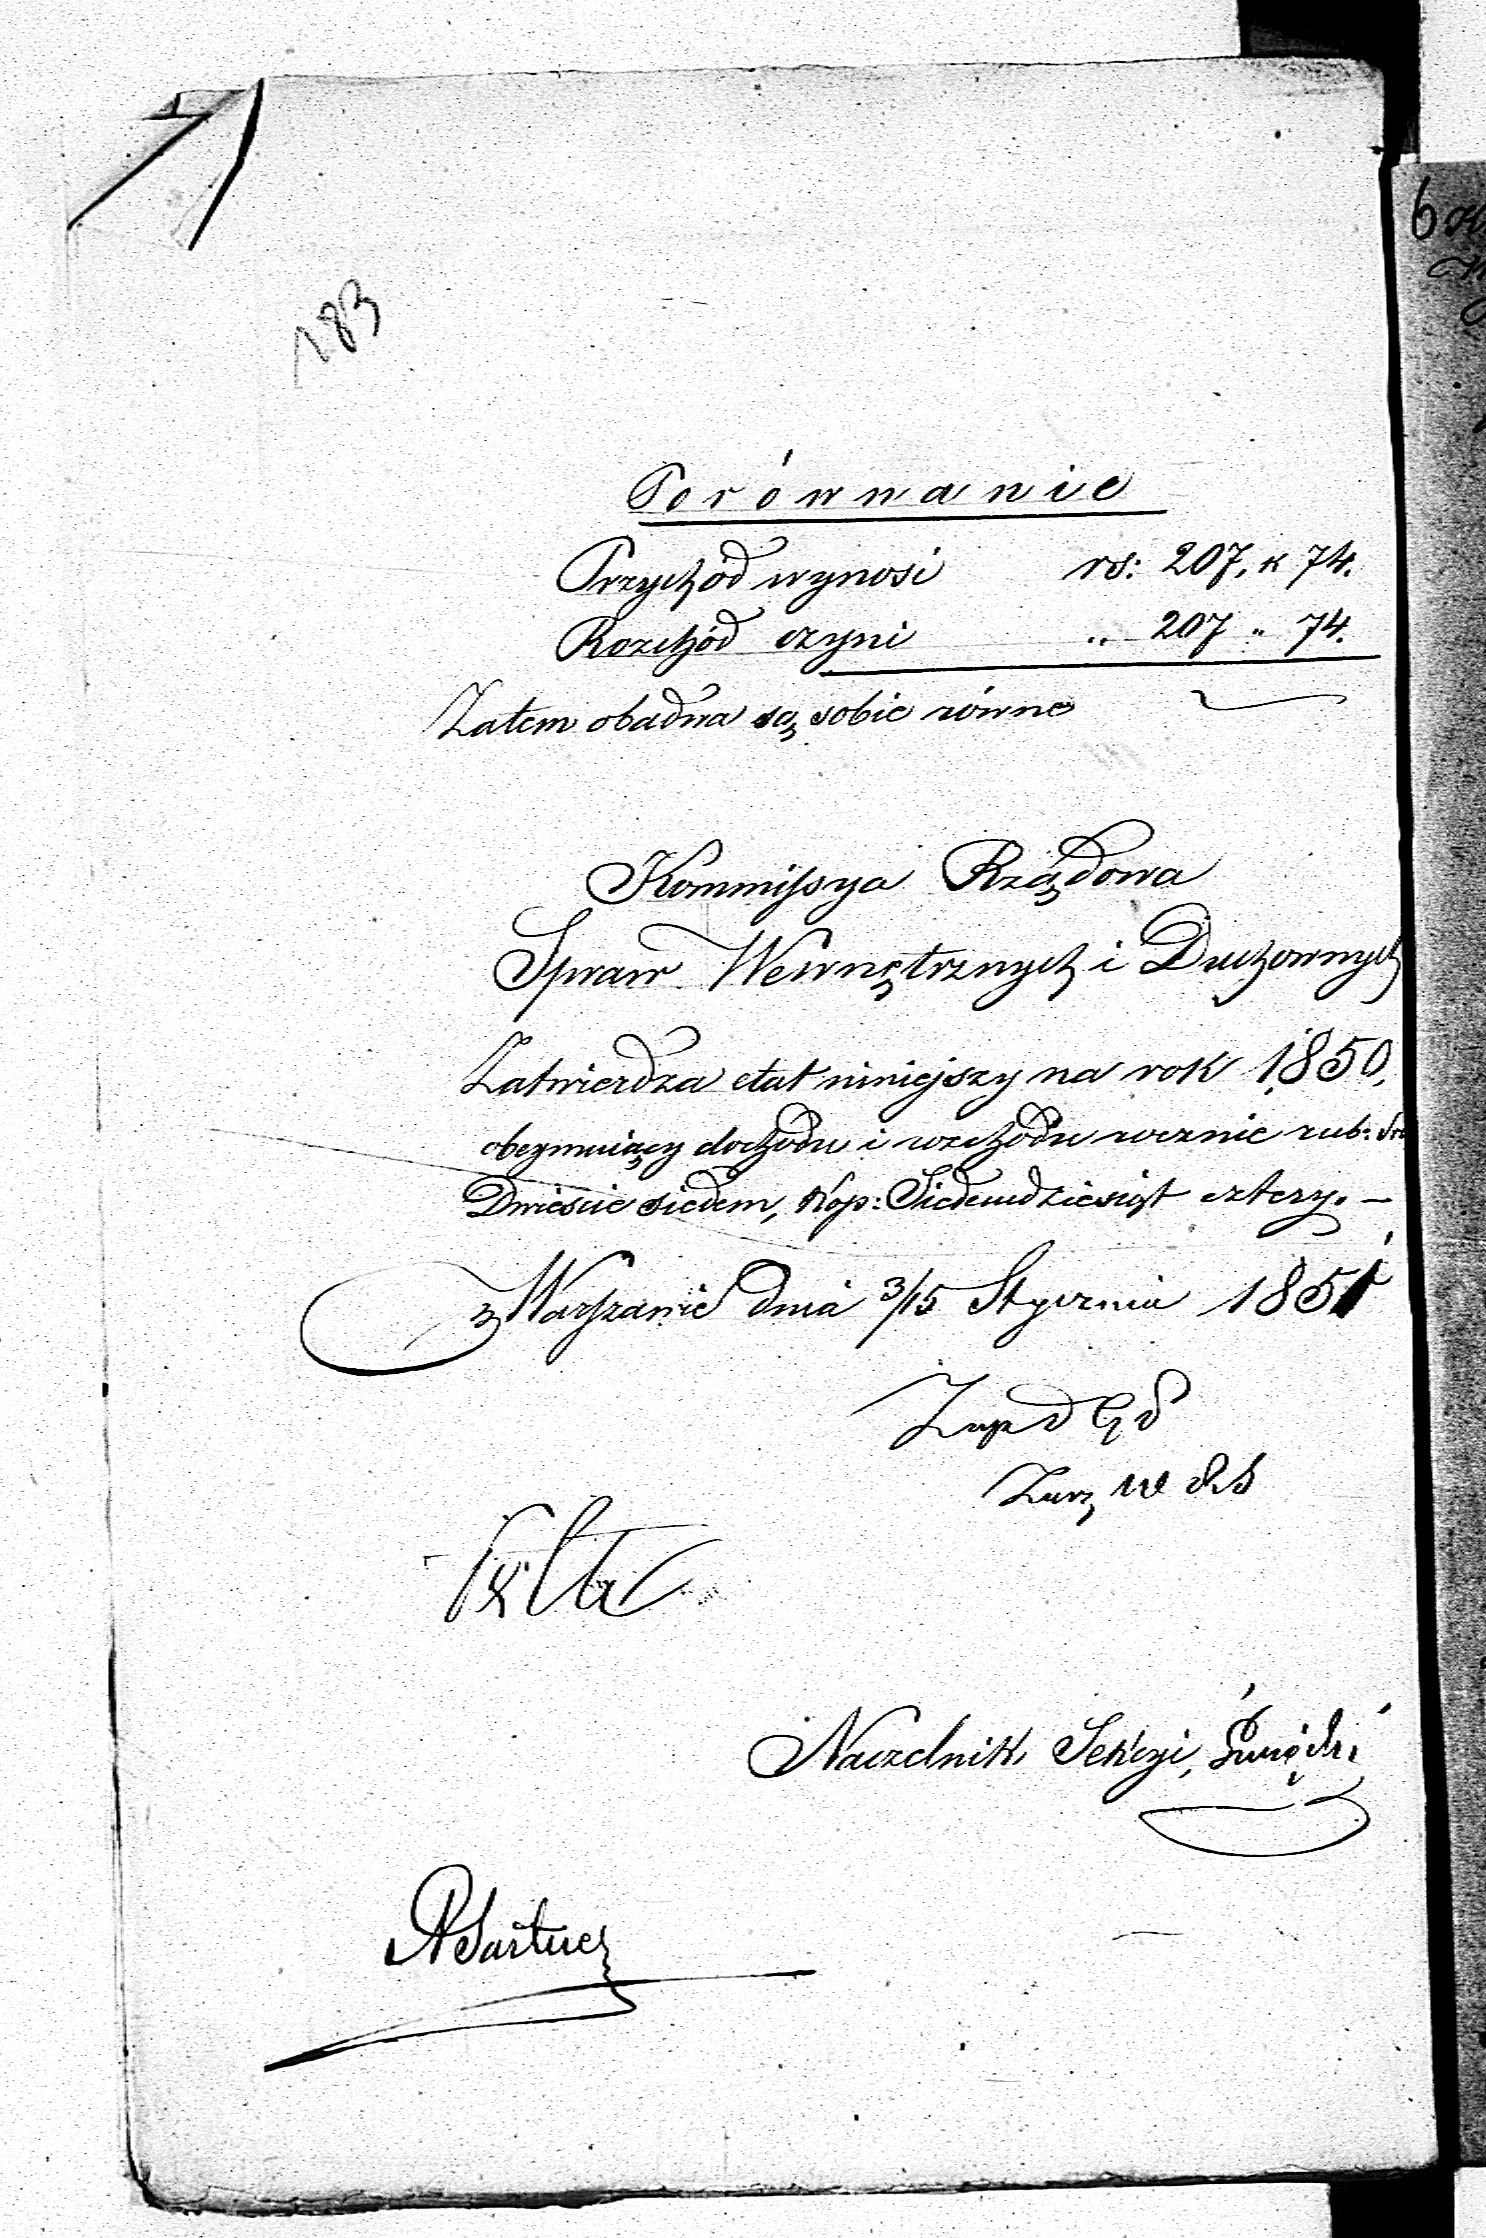 183
Porównanie
Przychód wynosi rs: 207, k 74.
Rozchód czyni " 207 " 74.
Zatem obadwa są sobie równe
Kommissya Rządowa
Spraw Wewnętrznych i Duchownych
Zatwierdza etat niniejszy na rok 1850,
obeymuiący dochodu i rozchodu rocznie rub: sr:
Dwieście siedem, kop: Siedemdziesiąt cztery. –
w Warszawie dnia 3/15 Stycznia 1851
Naczelnik Sekcyi,